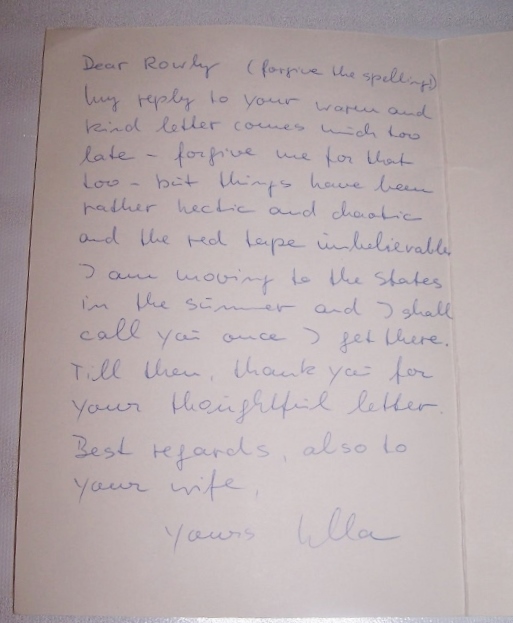 Dear Rowly (forgive the spelling!)
My reply to your warm and
kind letter comes much too
late - forgive me for that
too - but things have been
rather hectic and chaotic
and the red tape unbelievable.
I am moving to the States
in the summer and I shall
call you once I get there.
Till then, thank you for
your thoughtful letter.
Best regards, also to
your wife,
Yours Ulla